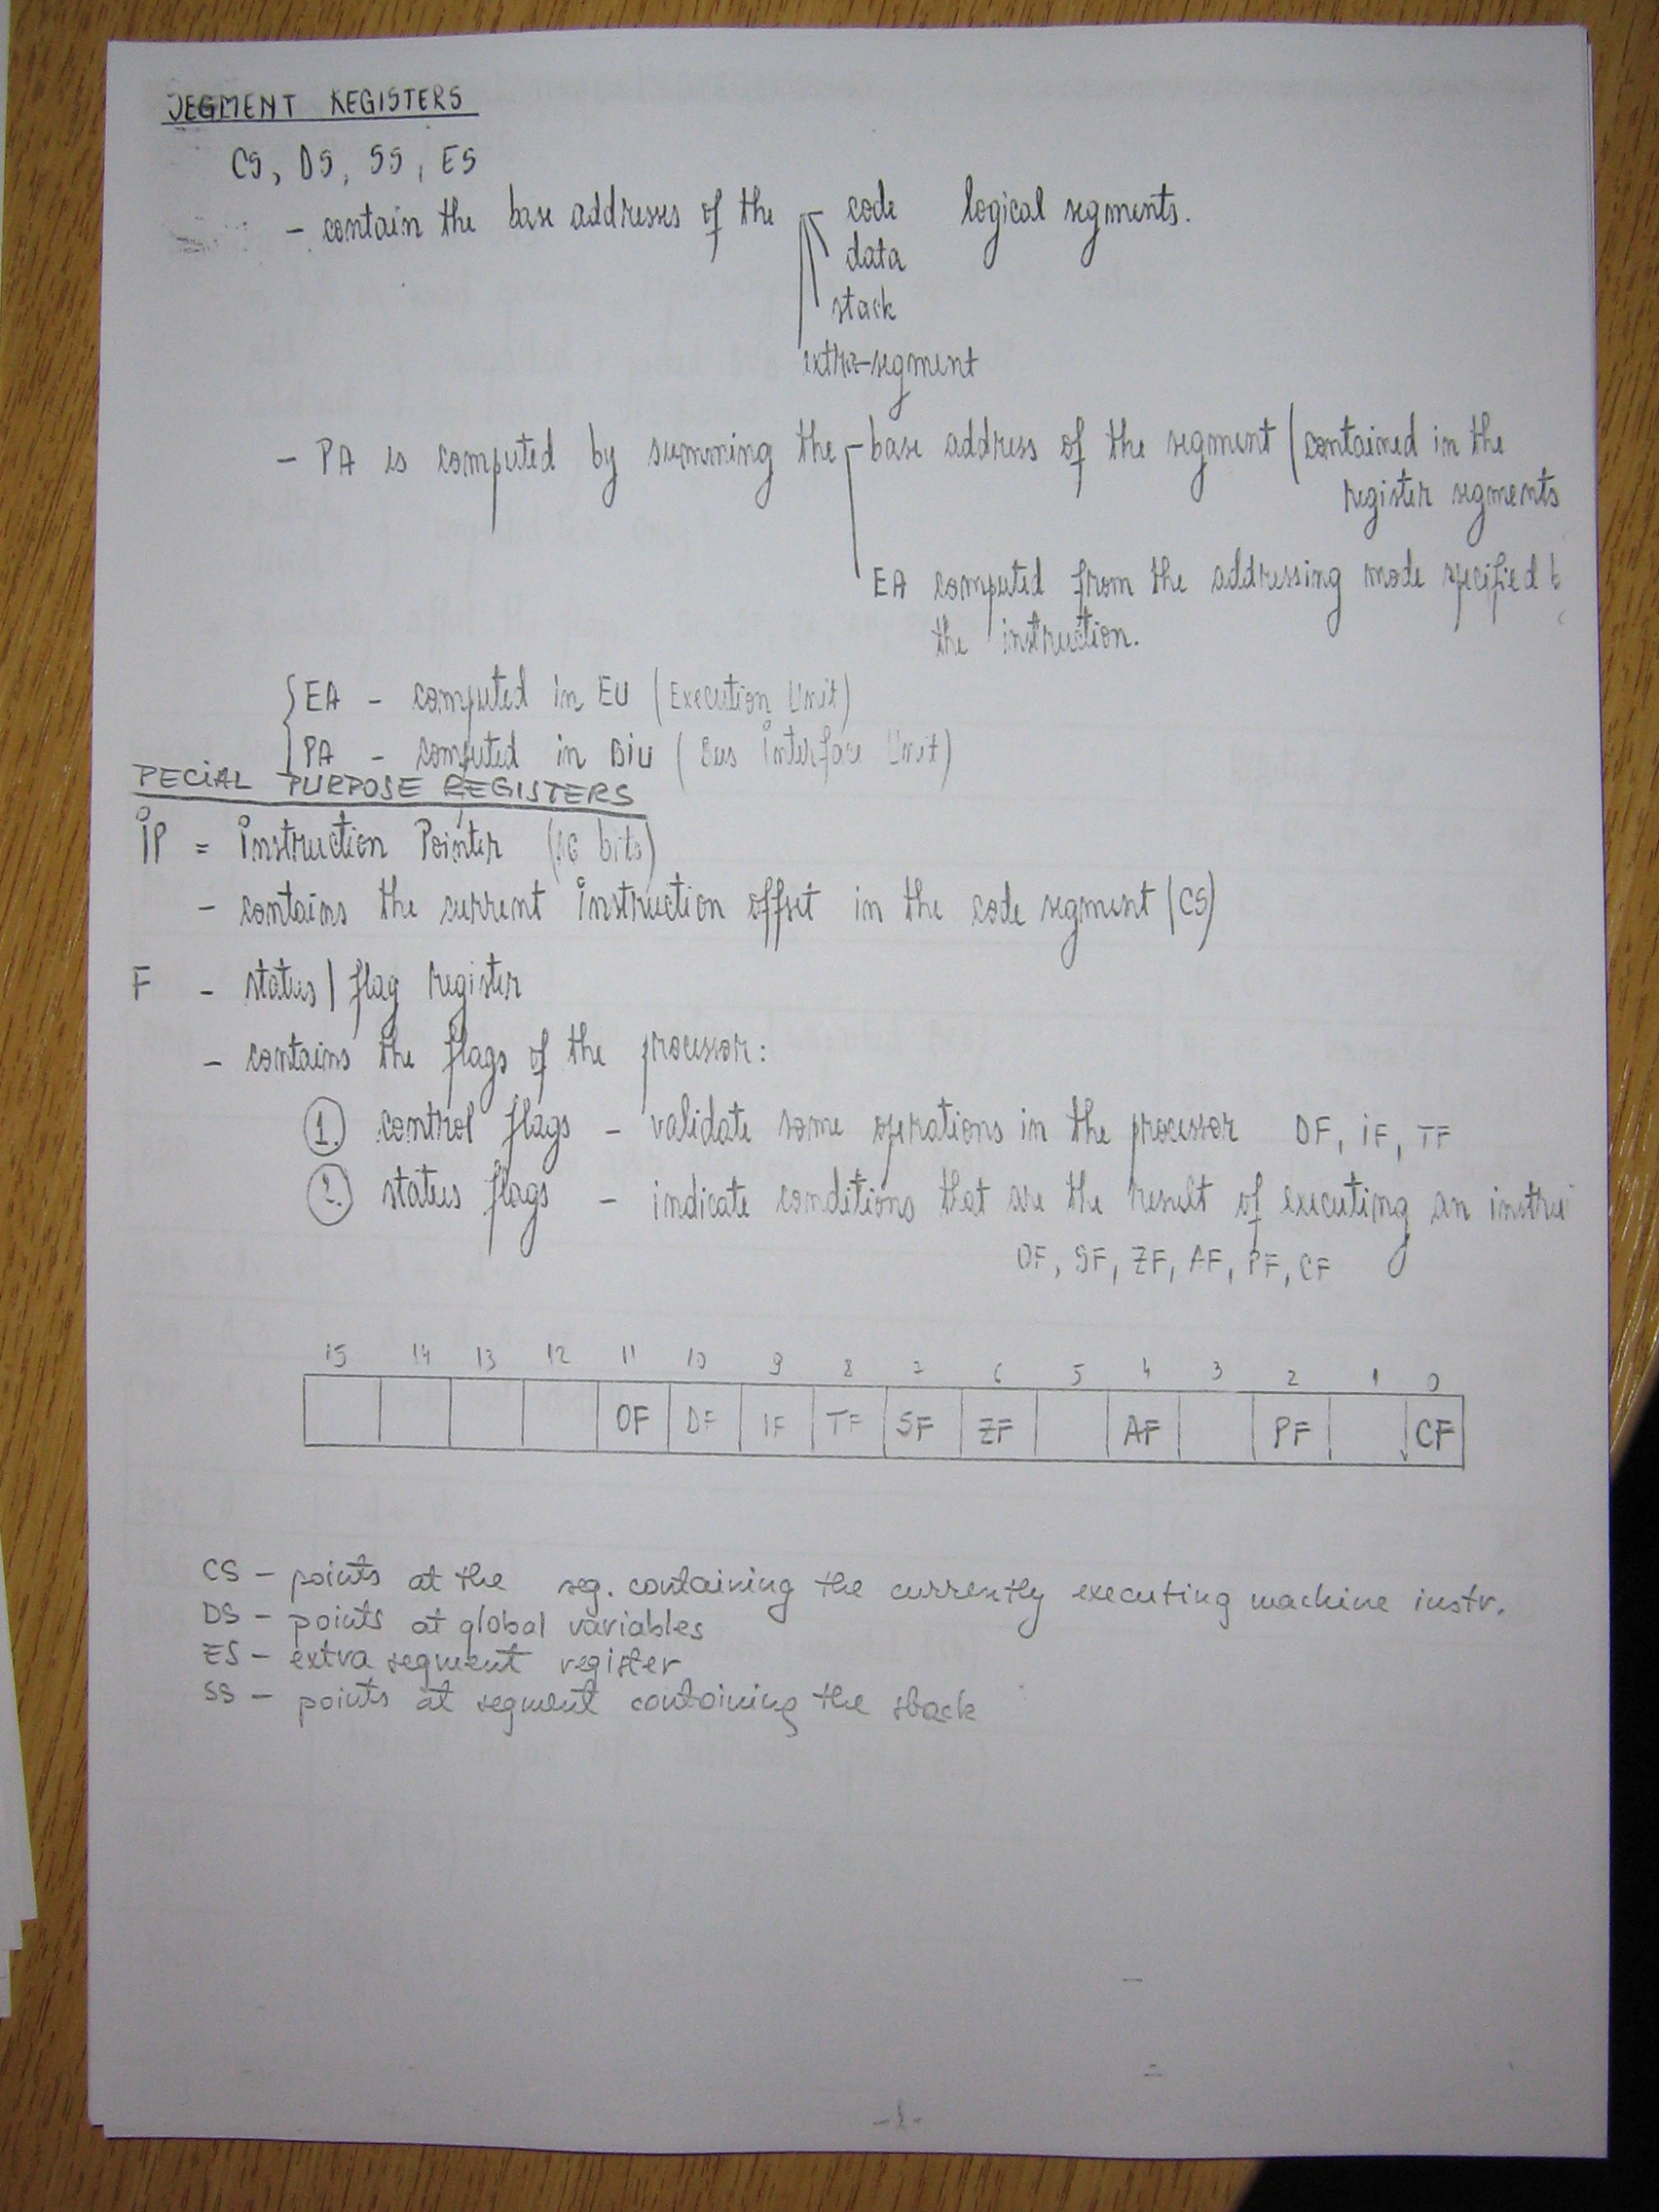 SEGMENT REGISTERS
CS, DS, SS, ES
- contain the base addresses of the code logical segments.
data
stack
extra-segment
- PA is computed by summing the base address of the segment (contained in the
register segments
EA computed from the addressing mode specified b
the instruction.
EA - computed in EU (Execution Unit)
PA - computed in BiU (Bus interface Unit)
PECIAL PURPOSE REGISTERS
iP = instruction Pointer (16 bits)
- contains the current instruction offset in the code segment (CS)
F - status / flag register
- contains the flags of the processor:
1. control flags - validate some operations in the processor DF, iF, TF
2. status flags - indicate conditions that are the result of executing an instru
OF, SF, ZF, AF, PF, CF
15 14 13 12 11 10 9 8 7 6 5 4 3 2 1 0
OF DF IF TF SF ZF AF PF CF
CS - points at the seg. containing the currently executing machine instr.
DS - points at global variables
ES - extra segment register
SS - points at segment containing the stack